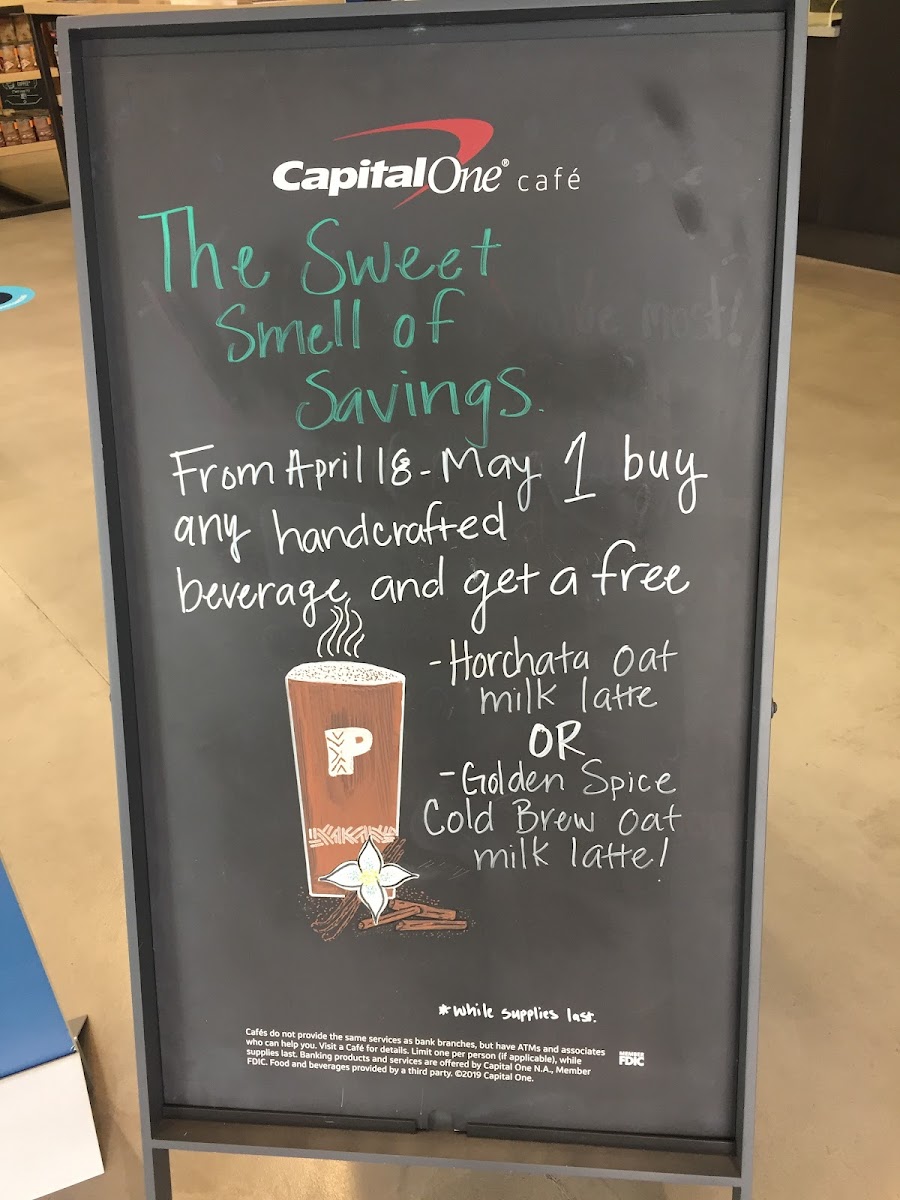 CapitalOne® café
The Sweet
Smell of
Savings.
From April 18 - May 1 buy
any handcrafted
beverage and get a free
- Horchata oat
milk latte
OR
- Golden Spice
Cold Brew oat
milk latte!
P
*while supplies last.
Cafés do not provide the same services as bank branches, but have ATMs and associates
who can help you. Visit a Café for details. Limit one per person (if applicable), while
supplies last. Banking products and services are offered by Capital One N.A., Member
FDIC. Food and beverages provided by a third party. ©2019 Capital One.
MEMBER
FDIC